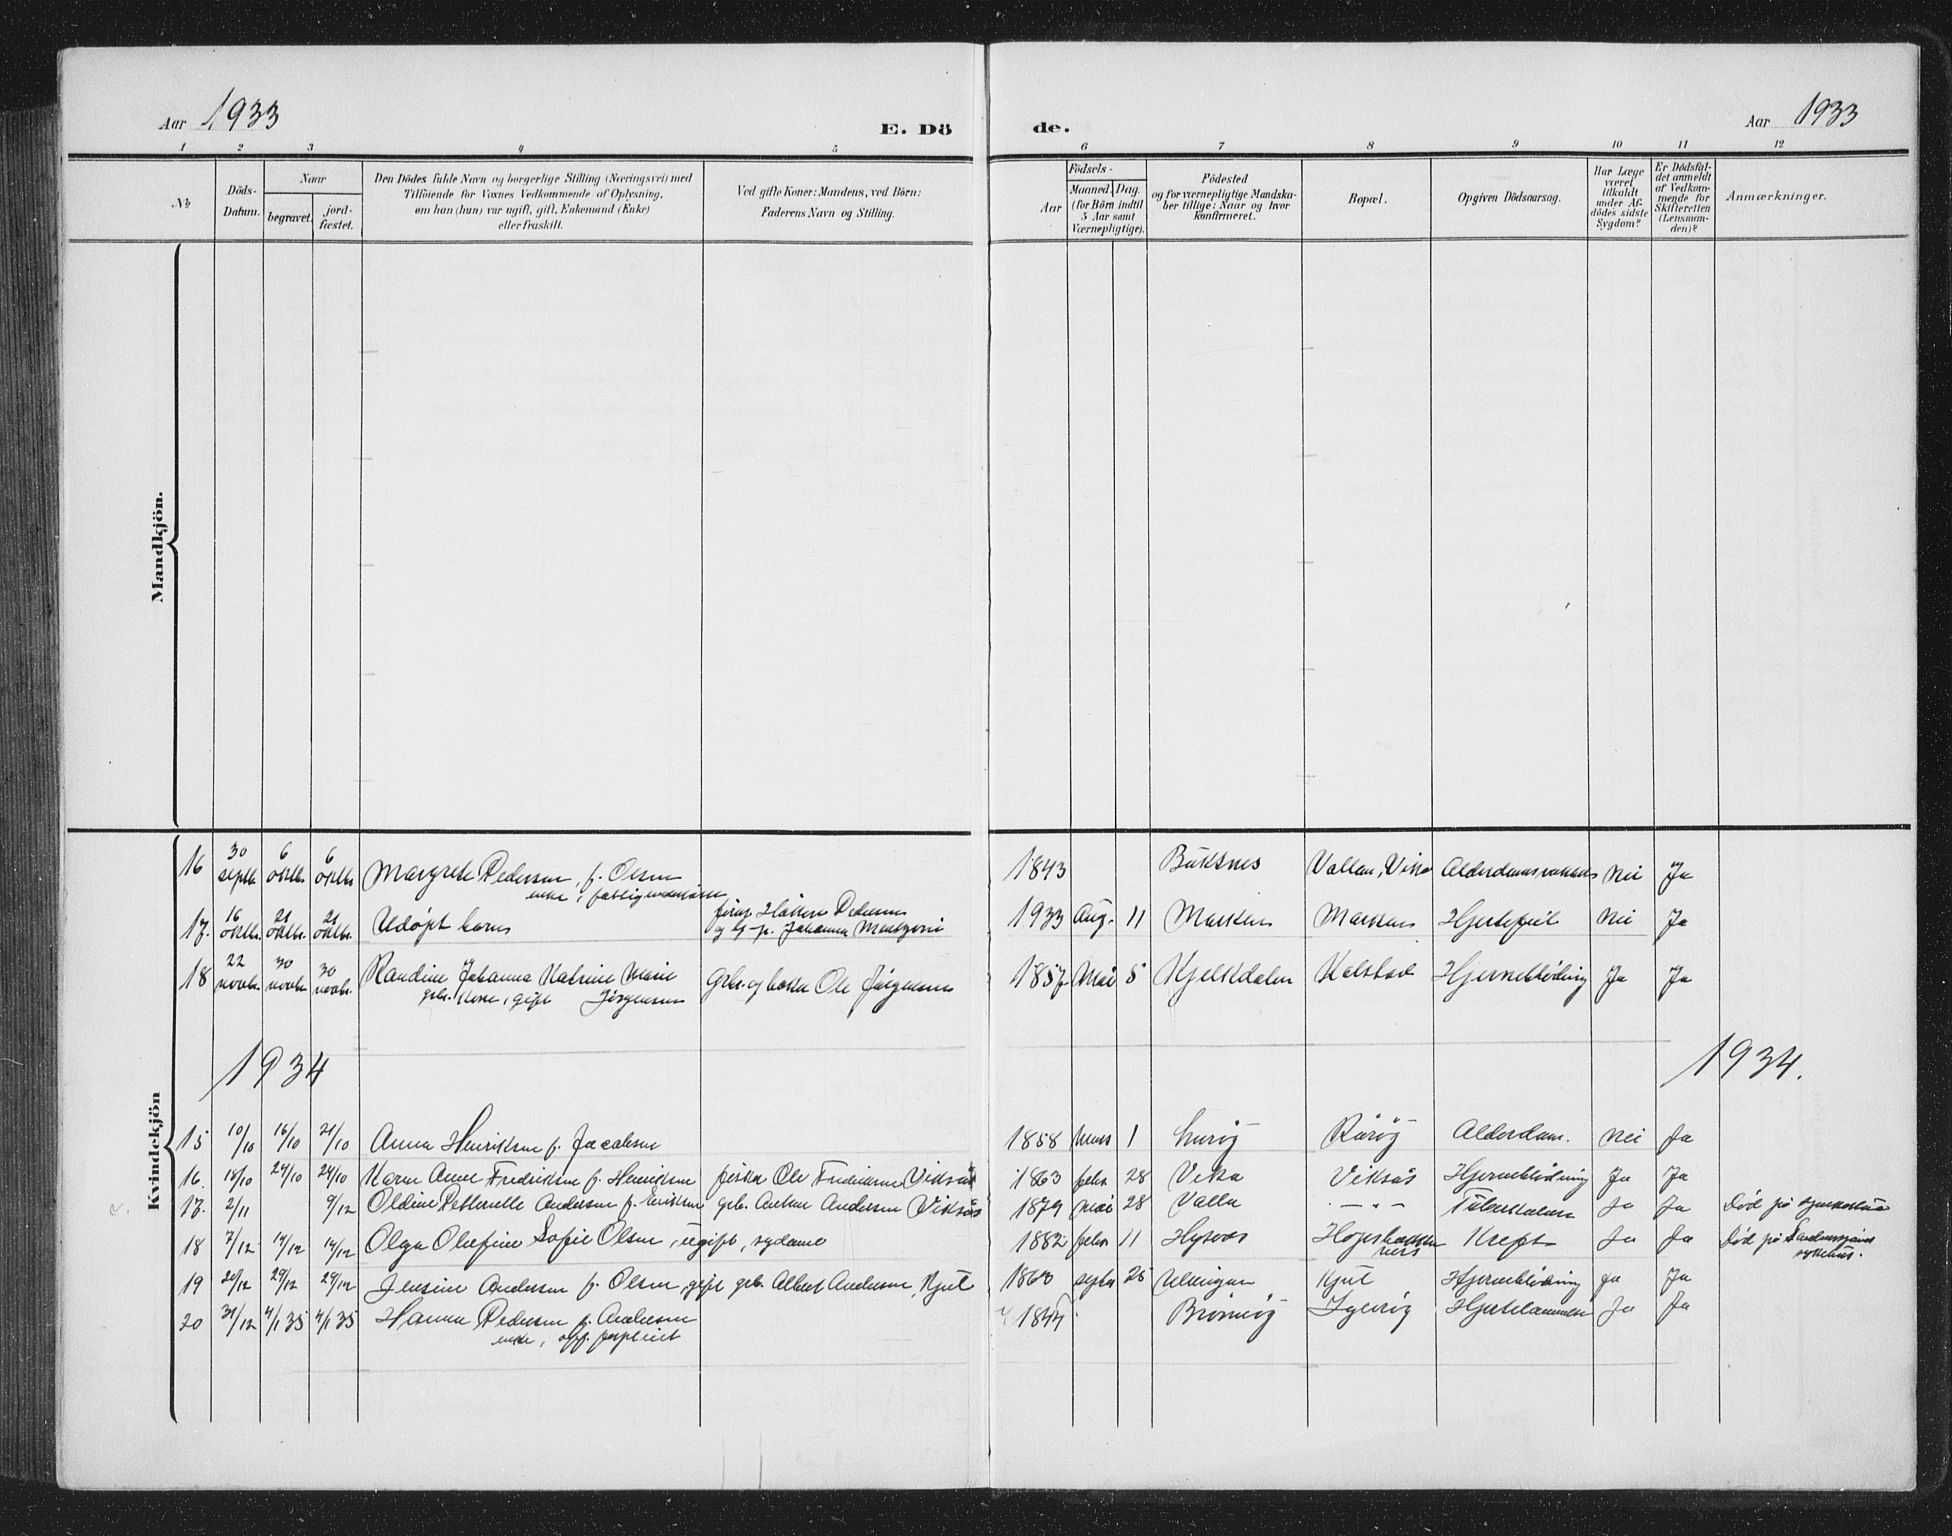 Aar 1933
E. Dö
de.
Aar 1933
1 2 3 4 5 6 7 8 9 10 11 12
No
Döds-Datum.
Naar
begravet.
jord-fæstet.
Den Dödes fulde Navn og borgerlige Stilling (Næringsvei) med
Tilföiende for Voxnes Vedkommende af Oplysning,
om han (hun) var ugift, gift, Enkemand (Enke)
eller fraskilt.
Ved gifte Koner: Mandens, ved Börn:
Faderens Navn og Stilling.
Födsels-
Aar
Maaned. Dag.
(for Börn indtil
5 Aar samt
Værnepligtige).
Födested
og for værnepligtige Mandska-
ber tillige: Naar og hvor
konfirmeret.
Bopæl.
Opgiven Dödsaarsag.
Har Læge
været
tilkaldt
under Af-
dödes sidste
Sygdom?
Er Dödsfal-
det anmeldt
af Vedkom-
mende for
Skifteretten
(Lensman-
den)?
Anmærkninger.
Mandkjön.
Kvindekjön
16 30 septb. 6 oktbr. 6 oktbr. Margrete Pedersen, f. Olsen 1843 Buksnes Vallan, Vika Nei Ja
enke,
17. 16 oktbr. 21 oktbr. 21 oktbr. Udøpt barn Håkon Pedersen 1933 Aug. 11 Marken Markan Hjertefeil Nei Ja
Johanna
18 22 novbr. 30 novbr. 30 novbr. Randine Johanna Katrine Marie Ole Jörgensen 1857 Mai 5 Kjelkdalen Kalstad Hjerneblödning Ja Ja
gift Jörgensen
1934 1934.
15 10/10 16/10 21/10 Anna Henriksen f. Jacobsen 1858 Mars 1 Lurøy Rårøy Alderdom. Nei Ja
16. 18/10 24/10 24/10 Karen Anne Fredriksen f. Henriksen fisker Ole Fredriksen Viksås 1863 febr 28 Vika Viksås Hjerneblödning Ja Ja
17. 2/11 9/12 Oldine Petternelle Andersen f. Eriksen grb. Anton Andersen Viksås 1879 mai 28 Valla - " - Tuberkulose Ja Ja Död på
18 7/12 14/12 14/12 Olga Olefine Sofie Olsen, ugift, sydame 1882 febr 11 Kreft Ja Ja Död på Sandnessjøen
sykehus.
19 20/12 29/12 29/12 Jensine Andersen f. Olsen, gift grb. Albert Andersen, Kjul septbr 25 Kjul Hjerneblödning Ja Ja
20 31/12 4/1 35 4/1 35 Hanna Pedersen f. Andersen 1844 Brønnøy Ja Ja
enke,